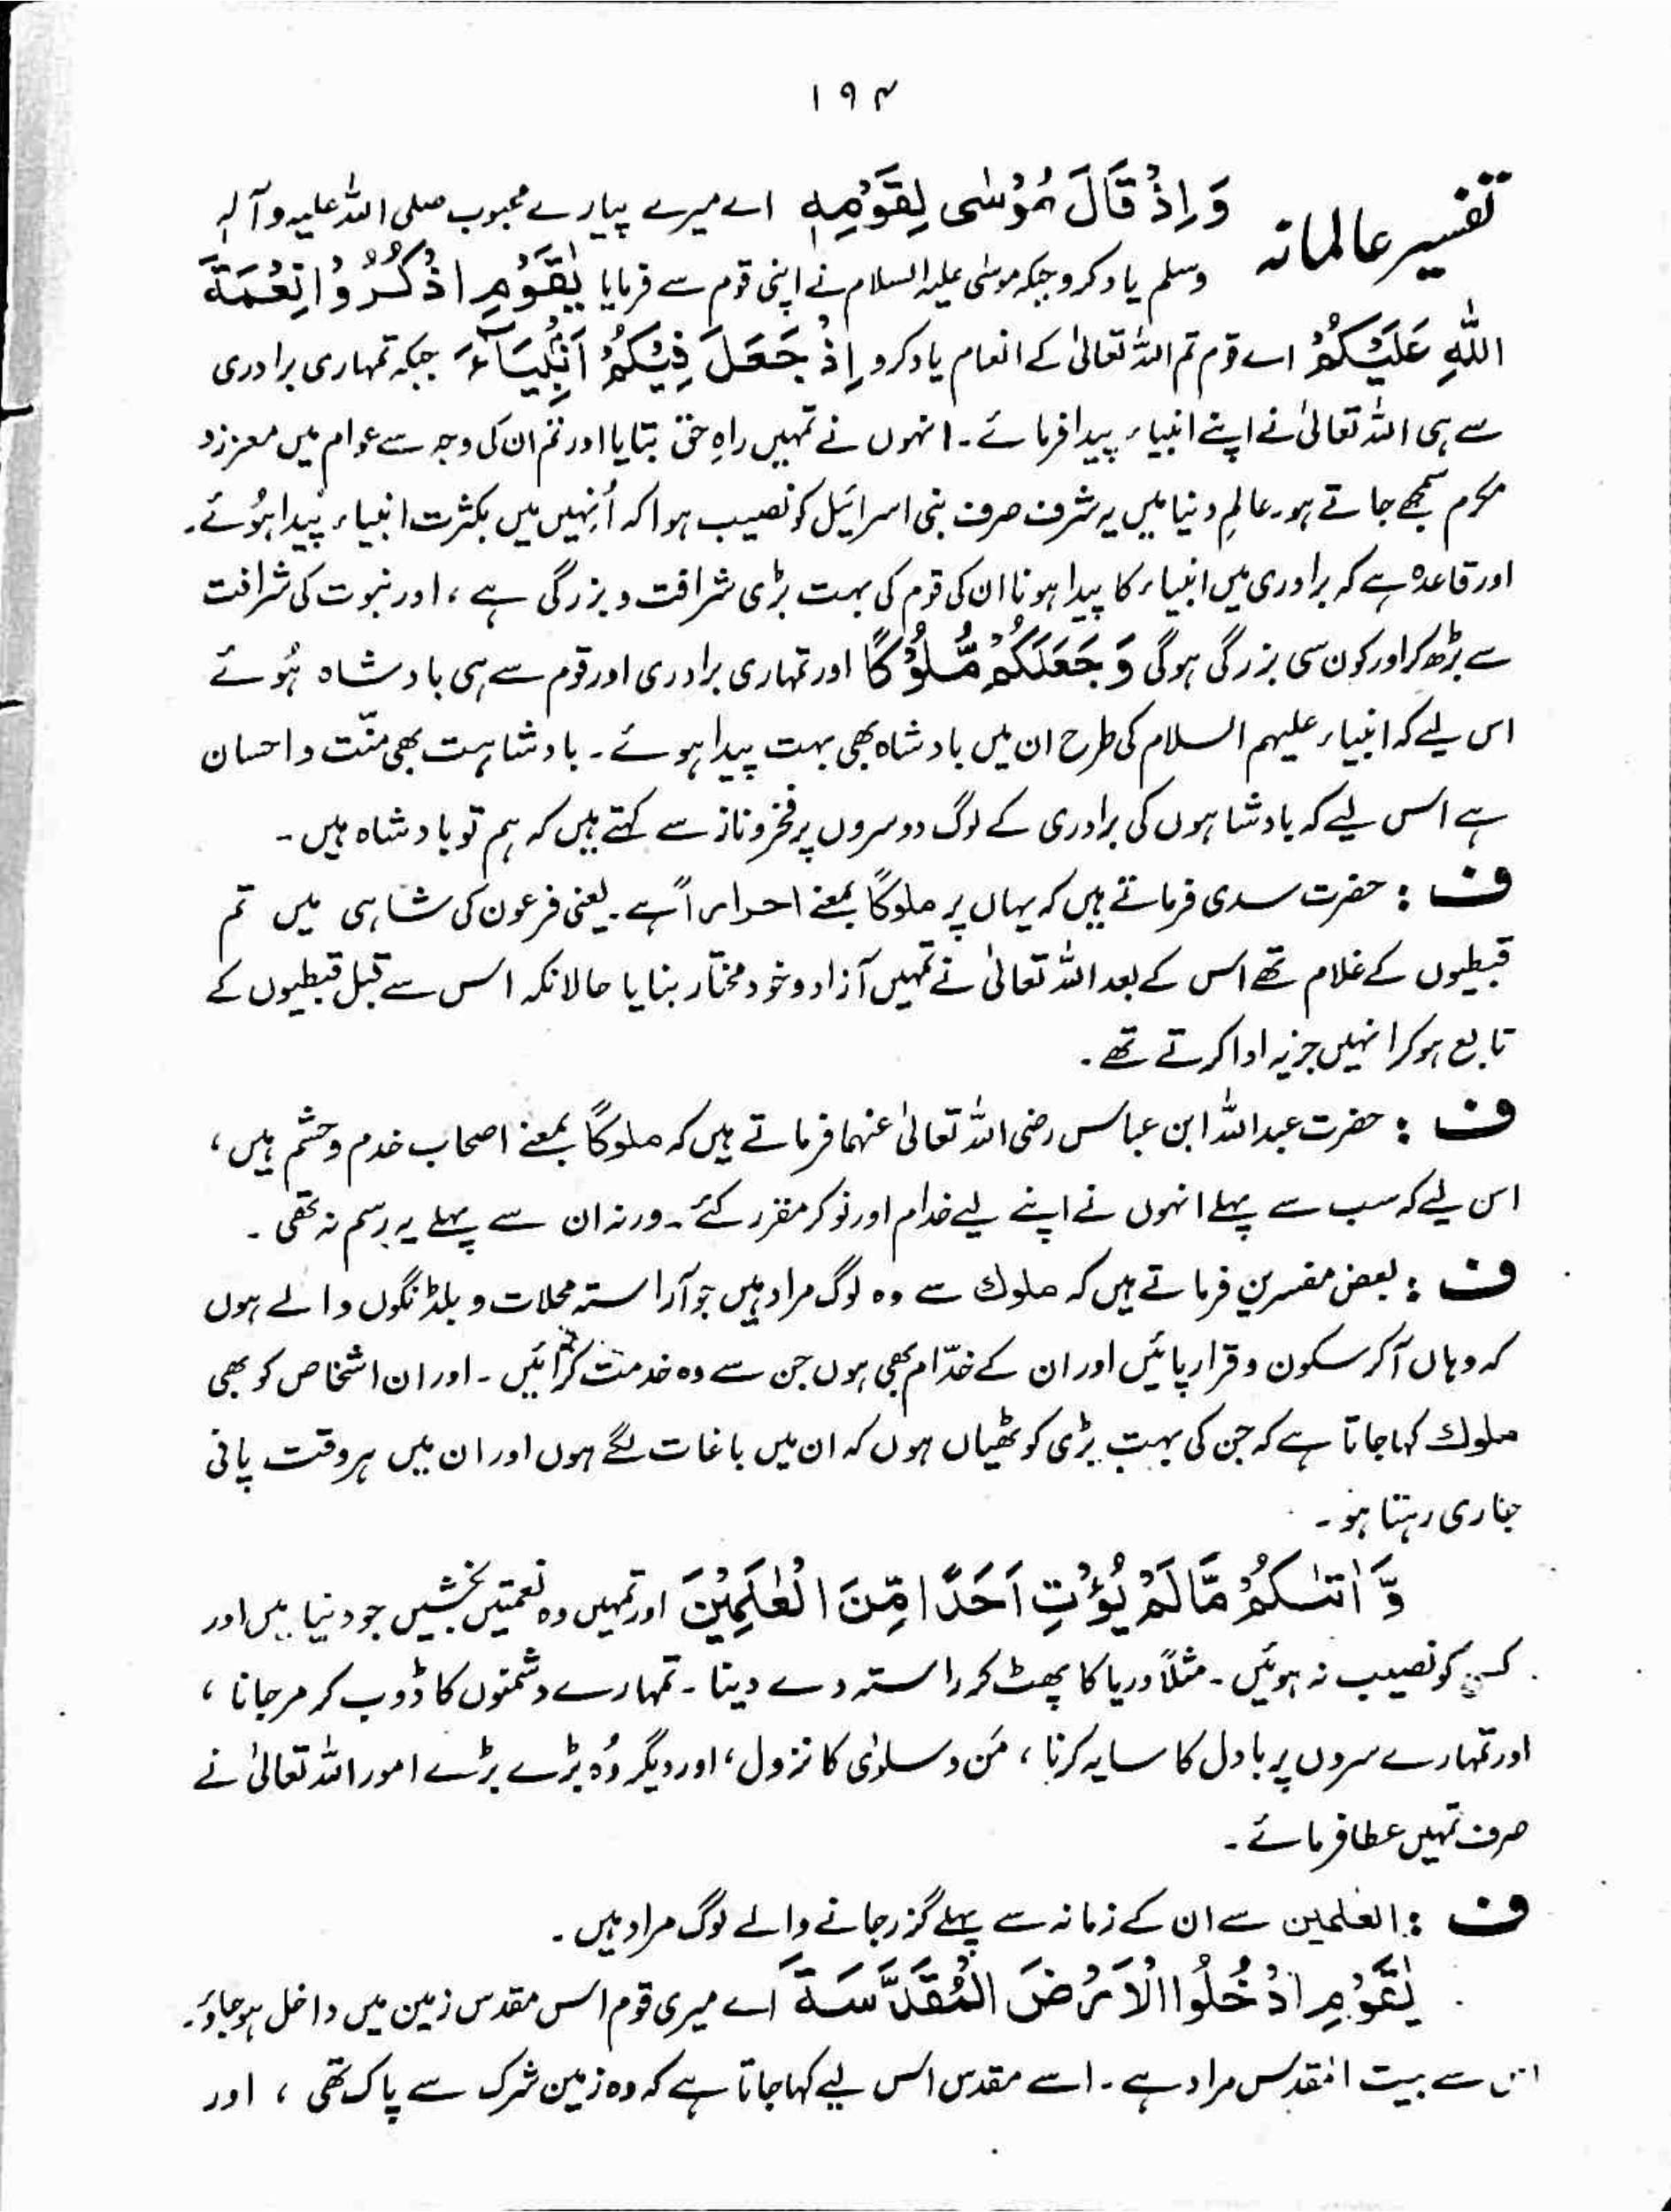 ۱۹۴
تفسیر عالمانہ وَ اِذْ قَالَ مُوْسٰی لِقَوْمِہٖ اے میرے پیارے محبوب صلی اللہ علیہ و آلہٖ
وسلم یاد کرو جبکہ موسٰی علیہ السلام نے اپنی قوم سے فرمایا یٰقَوْمِ اذْکُرُوْا نِعْمَۃَ
اللّٰہِ عَلَیْکُمْ اے قوم تم اللہ تعالیٰ کے انعام یاد کرو اِذْ جَعَلَ فِیْکُمْ اَنْۢبِیَآءَ جبکہ تمہاری برادری
سے ہی اللہ تعالیٰ نے اپنے انبیاء پیدا فرمائے۔ انہوں نے تمہیں راہِ حق بتایا اور تم ان کی وجہ سے عوام میں معزز و
مکرم سمجھے جاتے ہو۔ عالمِ دنیا میں یہ شرف صرف بنی اسرائیل کو نصیب ہوا کہ اُنہیں میں بکثرت انبیاء پیدا ہُوئے۔
اور قاعدہ ہے کہ برادری میں انبیاء کا پیدا ہونا ان کی قوم کی بہت بڑی شرافت و بزرگی ہے ، اور نبوت کی شرافت
سے بڑھ کر اور کون سی بزرگی ہوگی وَ جَعَلَکُمْ مُّلُوْکًا اور تمہاری برادری اور قوم سے ہی بادشاہ ہُوئے
اس لیے کہ انبیاء علیہم السلام کی طرح ان میں بادشاہ بھی بہت پیدا ہوئے۔ بادشاہت بھی منّت و احسان
ہے اس لیے کہ بادشاہوں کی برادری کے لوگ دوسروں پر فخر و ناز سے کہتے ہیں کہ ہم تو بادشاہ ہیں۔
ف : حضرت سدی فرماتے ہیں کہ یہاں پر ملوکًا بمعنے احرارًا ہے۔ یعنی فرعون کی شاہی میں تم
قبطیوں کے غلام تھے اس کے بعد اللہ تعالیٰ نے تمہیں آزاد و خود مختار بنایا حالانکہ اس سے قبل قبطیوں کے
تابع ہو کر انہیں جزیہ ادا کرتے تھے۔
ف : حضرت عبداللہ ابن عباس رضی اللہ تعالیٰ عنہما فرماتے ہیں کہ ملوکًا بمعنے اصحاب خدم و حشم ہیں ،
اس لیے کہ سب سے پہلے انہوں نے اپنے لیے خدام اور نوکر مقرر کئے۔ ورنہ ان سے پہلے یہ رسم نہ تھی۔
ف : بعض مفسرین فرماتے ہیں کہ ملوک سے وہ لوگ مراد ہیں جو آراستہ محلات و بلڈنگوں والے ہوں
کہ وہاں آکر سکون و قرار پائیں اور ان کے خدّام بھی ہوں جن سے وہ خدمت کرائیں۔ اور ان اشخاص کو بھی
ملوک کہا جاتا ہے کہ جن کی بہت بڑی کوٹھیاں ہوں کہ ان میں باغات لگے ہوں اور ان میں ہر وقت پانی
جاری رہتا ہو۔
وَّ اٰتٰىکُمْ مَّا لَمْ یُؤْتِ اَحَدًا مِّنَ الْعٰلَمِیْنَ اور تمہیں وہ نعمتیں بخشیں جو دنیا میں اور
کسی کو نصیب نہ ہوئیں۔ مثلاً دریا کا پھٹ کر راستہ دے دینا۔ تمہارے دشمنوں کا ڈوب کر مرجانا ،
اور تمہارے سروں پر بادل کا سایہ کرنا ، مَن و سلوٰی کا نزول ، اور دیگر وُہ بڑے بڑے امور اللہ تعالیٰ نے
صرف تمہیں عطا فرمائے۔
ف : العٰلمین سے ان کے زمانہ سے پہلے گزر جانے والے لوگ مراد ہیں۔
یٰقَوْمِ ادْخُلُوا الْاَرْضَ الْمُقَدَّسَۃَ اے میری قوم اس مقدس زمین میں داخل ہو جاؤ۔
اس سے بیت المقدس مراد ہے۔ اسے مقدس اس لیے کہا جاتا ہے کہ وہ زمین شرک سے پاک تھی ، اور